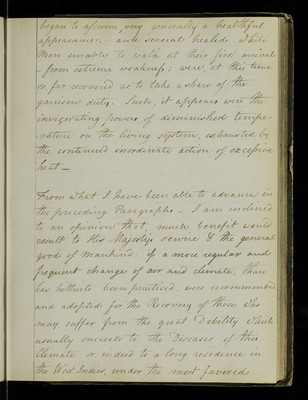 began to assume, very generally a healthful
appearance; and several healed. While
Men unable to walk at their first arrival
- from extreme weakness; were, at this time
so far recovered as to take a share of the
garrison duty. Such, it appears were the
invigorating powers of diminished tempe-
rature on the living system, exhausted by
the continued inordinate action of excessive
heat —
From what I have been able to advance in
the preceding Paragraphs - I am inclined
to an opinion that much benefit would
result to His Majesty's service & the general
good of Mankind: if a more regular and
frequent change of air and climate, than
has hitherto been practised, were recommended
and adopted for the Recovery of those who
may suffer from the great Debility which
usually succeeds to the Diseases of this
Climate or indeed to a long residence in
the West Indies, under the most favored